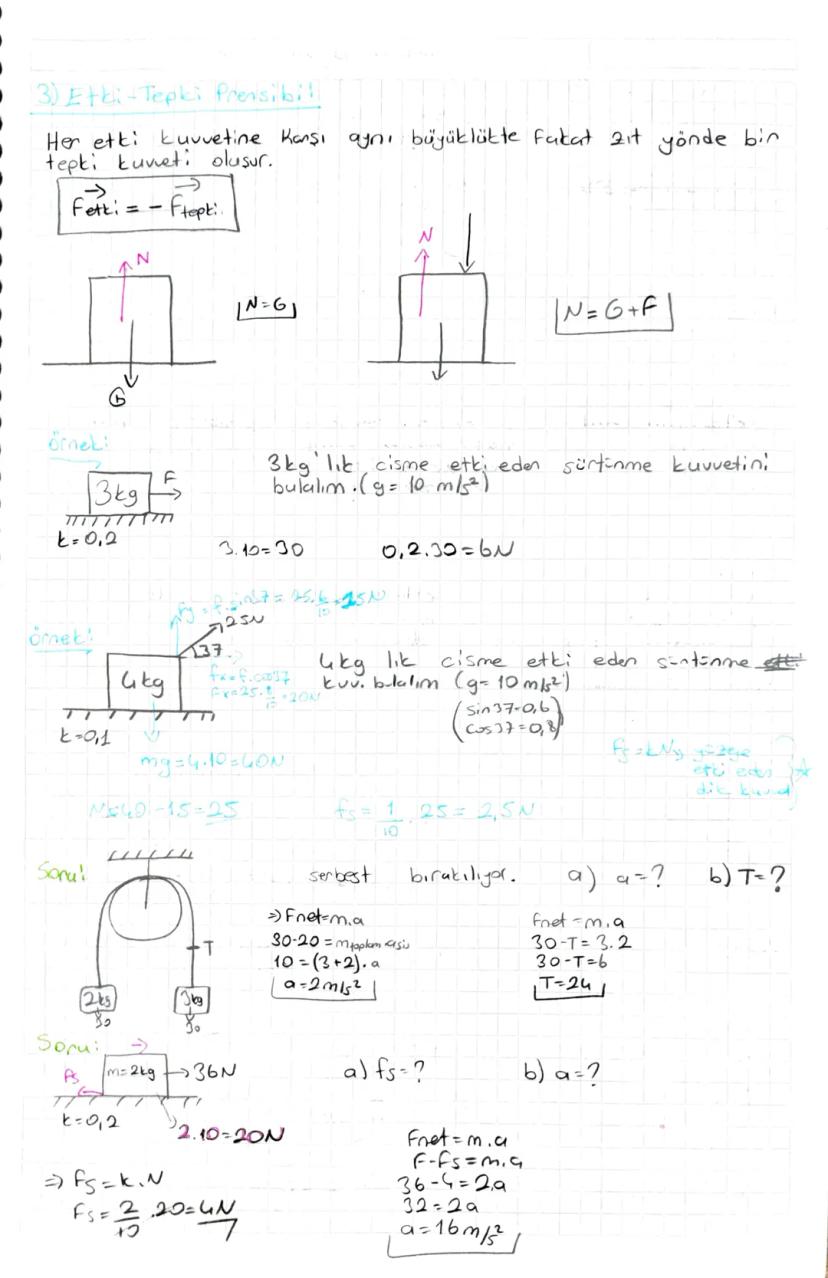 3) Etki-Tepki Prensibi!
Her etki kuvvetine karşı aynı büyüklükte fakat zıt yönde bir
tepki kuvveti oluşur.
Fetki = - Ftepki
N
N=G
G
N
N = G+F
örnek:
3kg
F
k=0,2
3kg'lık cisme etki eden sürtünme kuvvetini
bulalım. (g= 10 m/s²)
3.10=30 0,2.30=6N
örnek:
Fy = F.sin37 = 25.6/10 = 15N
25N
37
4kg
Fx=F.cos37
Fx=25.8/10=20N
k=0,1
mg=4.10=40N
4kg lık cisme etki eden sürtünme
kuv. bulalım (g= 10m/s²)
(sin37=0,6
cos37=0,8)
fs=kN yüzeye
etki eden
dik kuvvet
N=40-15=25 fs= 1/10 . 25 = 2,5N
Soru:
serbest bırakılıyor. a) a=? b) T=?
T
2kg
3kg
20
30
⇒ Fnet=m.a
30-20=mtoplam.a
10 = (3+2).a
a=2m/s²
Fnet=m.a
30-T=3.2
30-T=6
T=24
Soru:
fs
m=2kg
36N
k=0,2
2.10=20N
a) fs=? b) a=?
⇒ fs=k.N
Fs= 2/10 .20=4N
Fnet=m.a
F-Fs=m.a
36-4=2.a
32=2a
a=16m/s²